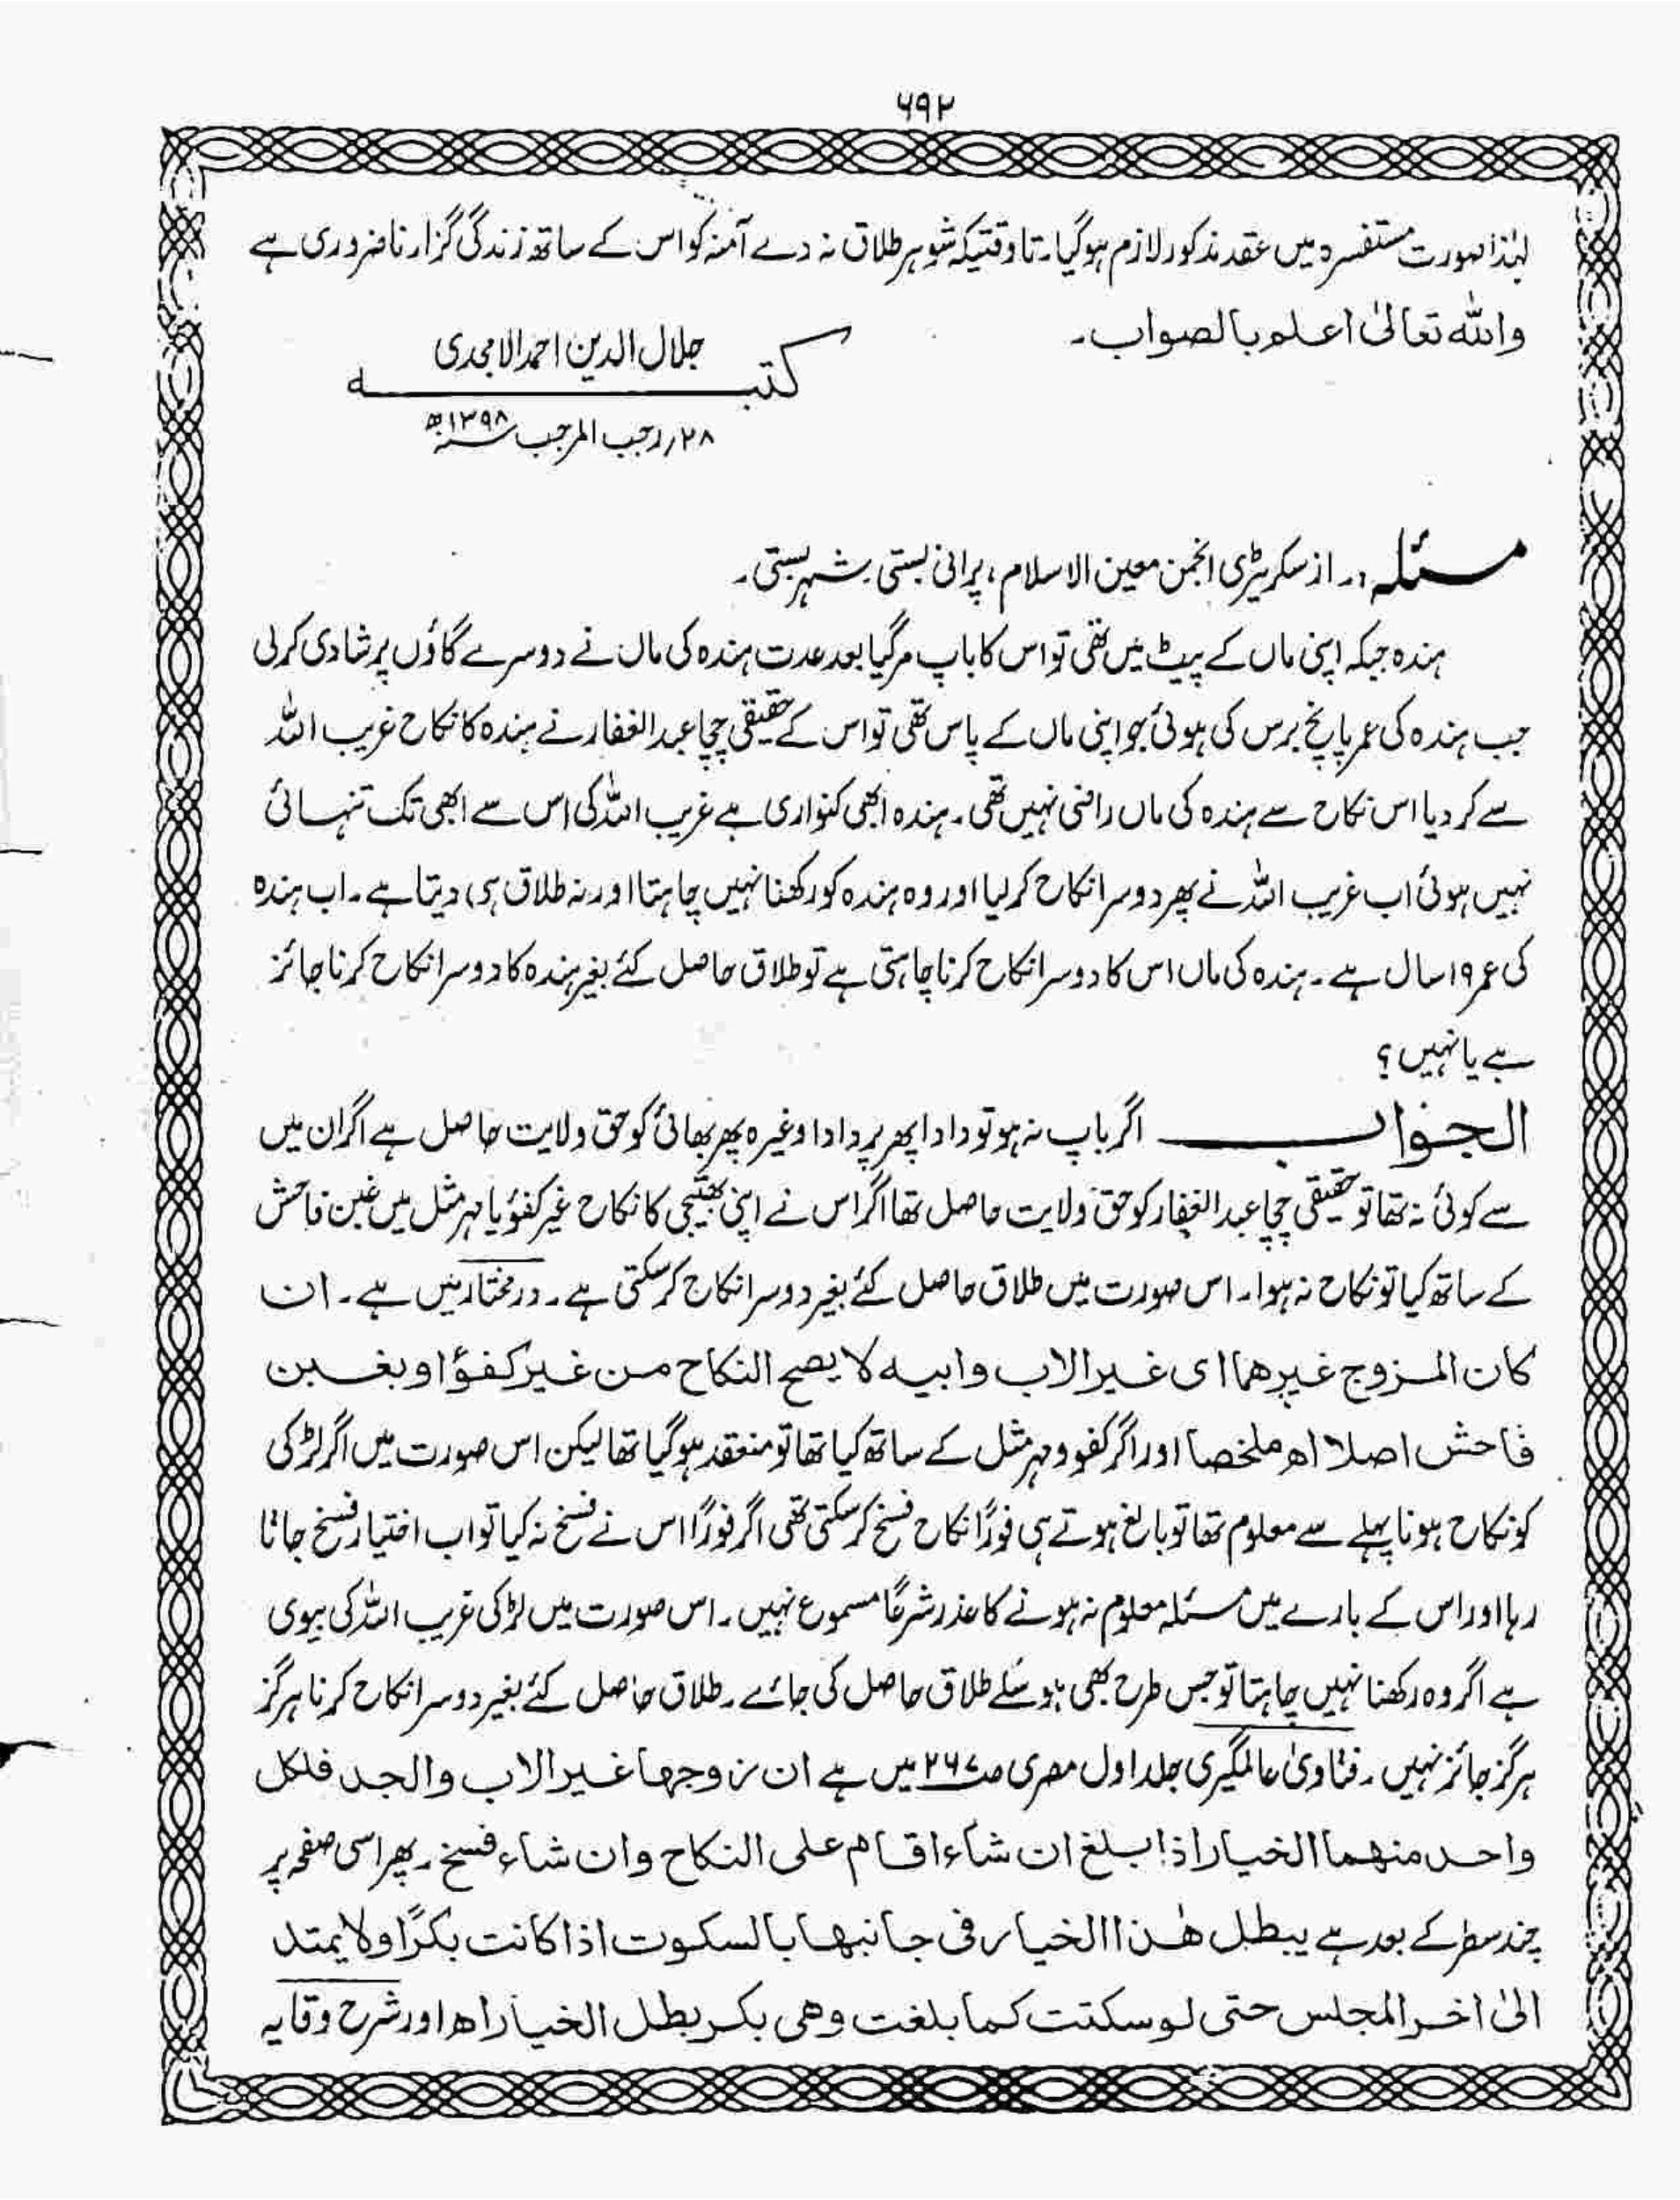 ۶۹۲
لہٰذا صورت مستفسرہ میں عقد مذکور لازم ہوگیا۔ تا وقتیکہ شوہر طلاق نہ دے آمنہ کو اس کے ساتھ زندگی گزارنا ضروری ہے
واللہ تعالیٰ اعلم بالصواب۔
جلال الدین احمد الامجدی
کتبہ
۲۸؍ رجب المرجب ۱۳۹۸ھ
مسئلہ:۔ از سکریٹری انجمن معین الاسلام، پرانی بستی۔ شہر بستی۔
ہندہ جبکہ اپنی ماں کے پیٹ میں تھی تو اس کا باپ مرگیا بعد عدت ہندہ کی ماں نے دوسرے گاؤں پر شادی کرلی
جب ہندہ کی عمر پانچ برس کی ہوئی جو اپنی ماں کے پاس تھی تو اس کے حقیقی چچا عبدالغفار نے ہندہ کا نکاح غریب اللہ
سے کردیا اس نکاح سے ہندہ کی ماں راضی نہیں تھی۔ ہندہ ابھی کنواری ہے غریب اللہ کی اس سے ابھی تک تنہائی
نہیں ہوئی اب غریب اللہ نے پھر دوسرا نکاح کرلیا اور وہ ہندہ کو رکھنا نہیں چاہتا اور نہ طلاق ہی دیتا ہے۔ اب ہندہ
کی عمر ۱۹ سال ہے۔ ہندہ کی ماں اس کا دوسرا نکاح کرنا چاہتی ہے تو طلاق حاصل کئے بغیر ہندہ کا دوسرا نکاح کرنا جائز
ہے یا نہیں؟
الجواب اگر باپ نہ ہو تو دادا پھر پردادا وغیرہ پھر بھائی کو حق ولایت حاصل ہے اگر ان میں
سے کوئی نہ تھا تو حقیقی چچا عبدالغفار کو حق ولایت حاصل تھا اگر اس نے اپنی بھتیجی کا نکاح غیر کفؤ یا مہر مثل میں غبن فاحش
کے ساتھ کیا تو نکاح نہ ہوا۔ اس صورت میں طلاق حاصل کئے بغیر دوسرا نکاح کرسکتی ہے۔ درمختار میں ہے۔ ان
کان المزوج غیرھما ای غیر الاب وابیہ لا یصح النکاح من غیر کفؤ او بغبن
فاحش اصلا اھ ملخصا اور اگر کفو و مہر مثل کے ساتھ کیا تھا تو منعقد ہوگیا تھا لیکن اس صورت میں اگر لڑکی
کو نکاح ہونا پہلے سے معلوم تھا تو بالغ ہوتے ہی فوراً نکاح فسخ کرسکتی تھی اگر فوراً اس نے فسخ نہ کیا تو اب اختیار فسخ جاتا
رہا اور اس کے بارے میں مسئلہ معلوم نہ ہونے کا عذر شرعًا مسموع نہیں۔ اس صورت میں لڑکی غریب اللہ کی بیوی
ہے اگر وہ رکھنا نہیں چاہتا تو جس طرح بھی ہوسکے طلاق حاصل کی جائے۔ طلاق حاصل کئے بغیر دوسرا نکاح کرنا ہرگز
ہرگز جائز نہیں۔ فتاویٰ عالمگیری جلد اول مصری ص۲۶۷ میں ہے ان زوجھا غیر الاب والجد فلکل
واحد منھما الخیار اذا بلغ ان شاء اقام علی النکاح وان شاء فسخ۔ پھر اسی صفحہ پر
چند سطر کے بعد ہے یبطل ھٰذا الخیار فی جانبھا بالسکوت اذا کانت بکرًا ولا یمتد
الیٰ اٰخر المجلس حتی لو سکتت کما بلغت وھی بکر بطل الخیار اھ اور شرح وقایہ